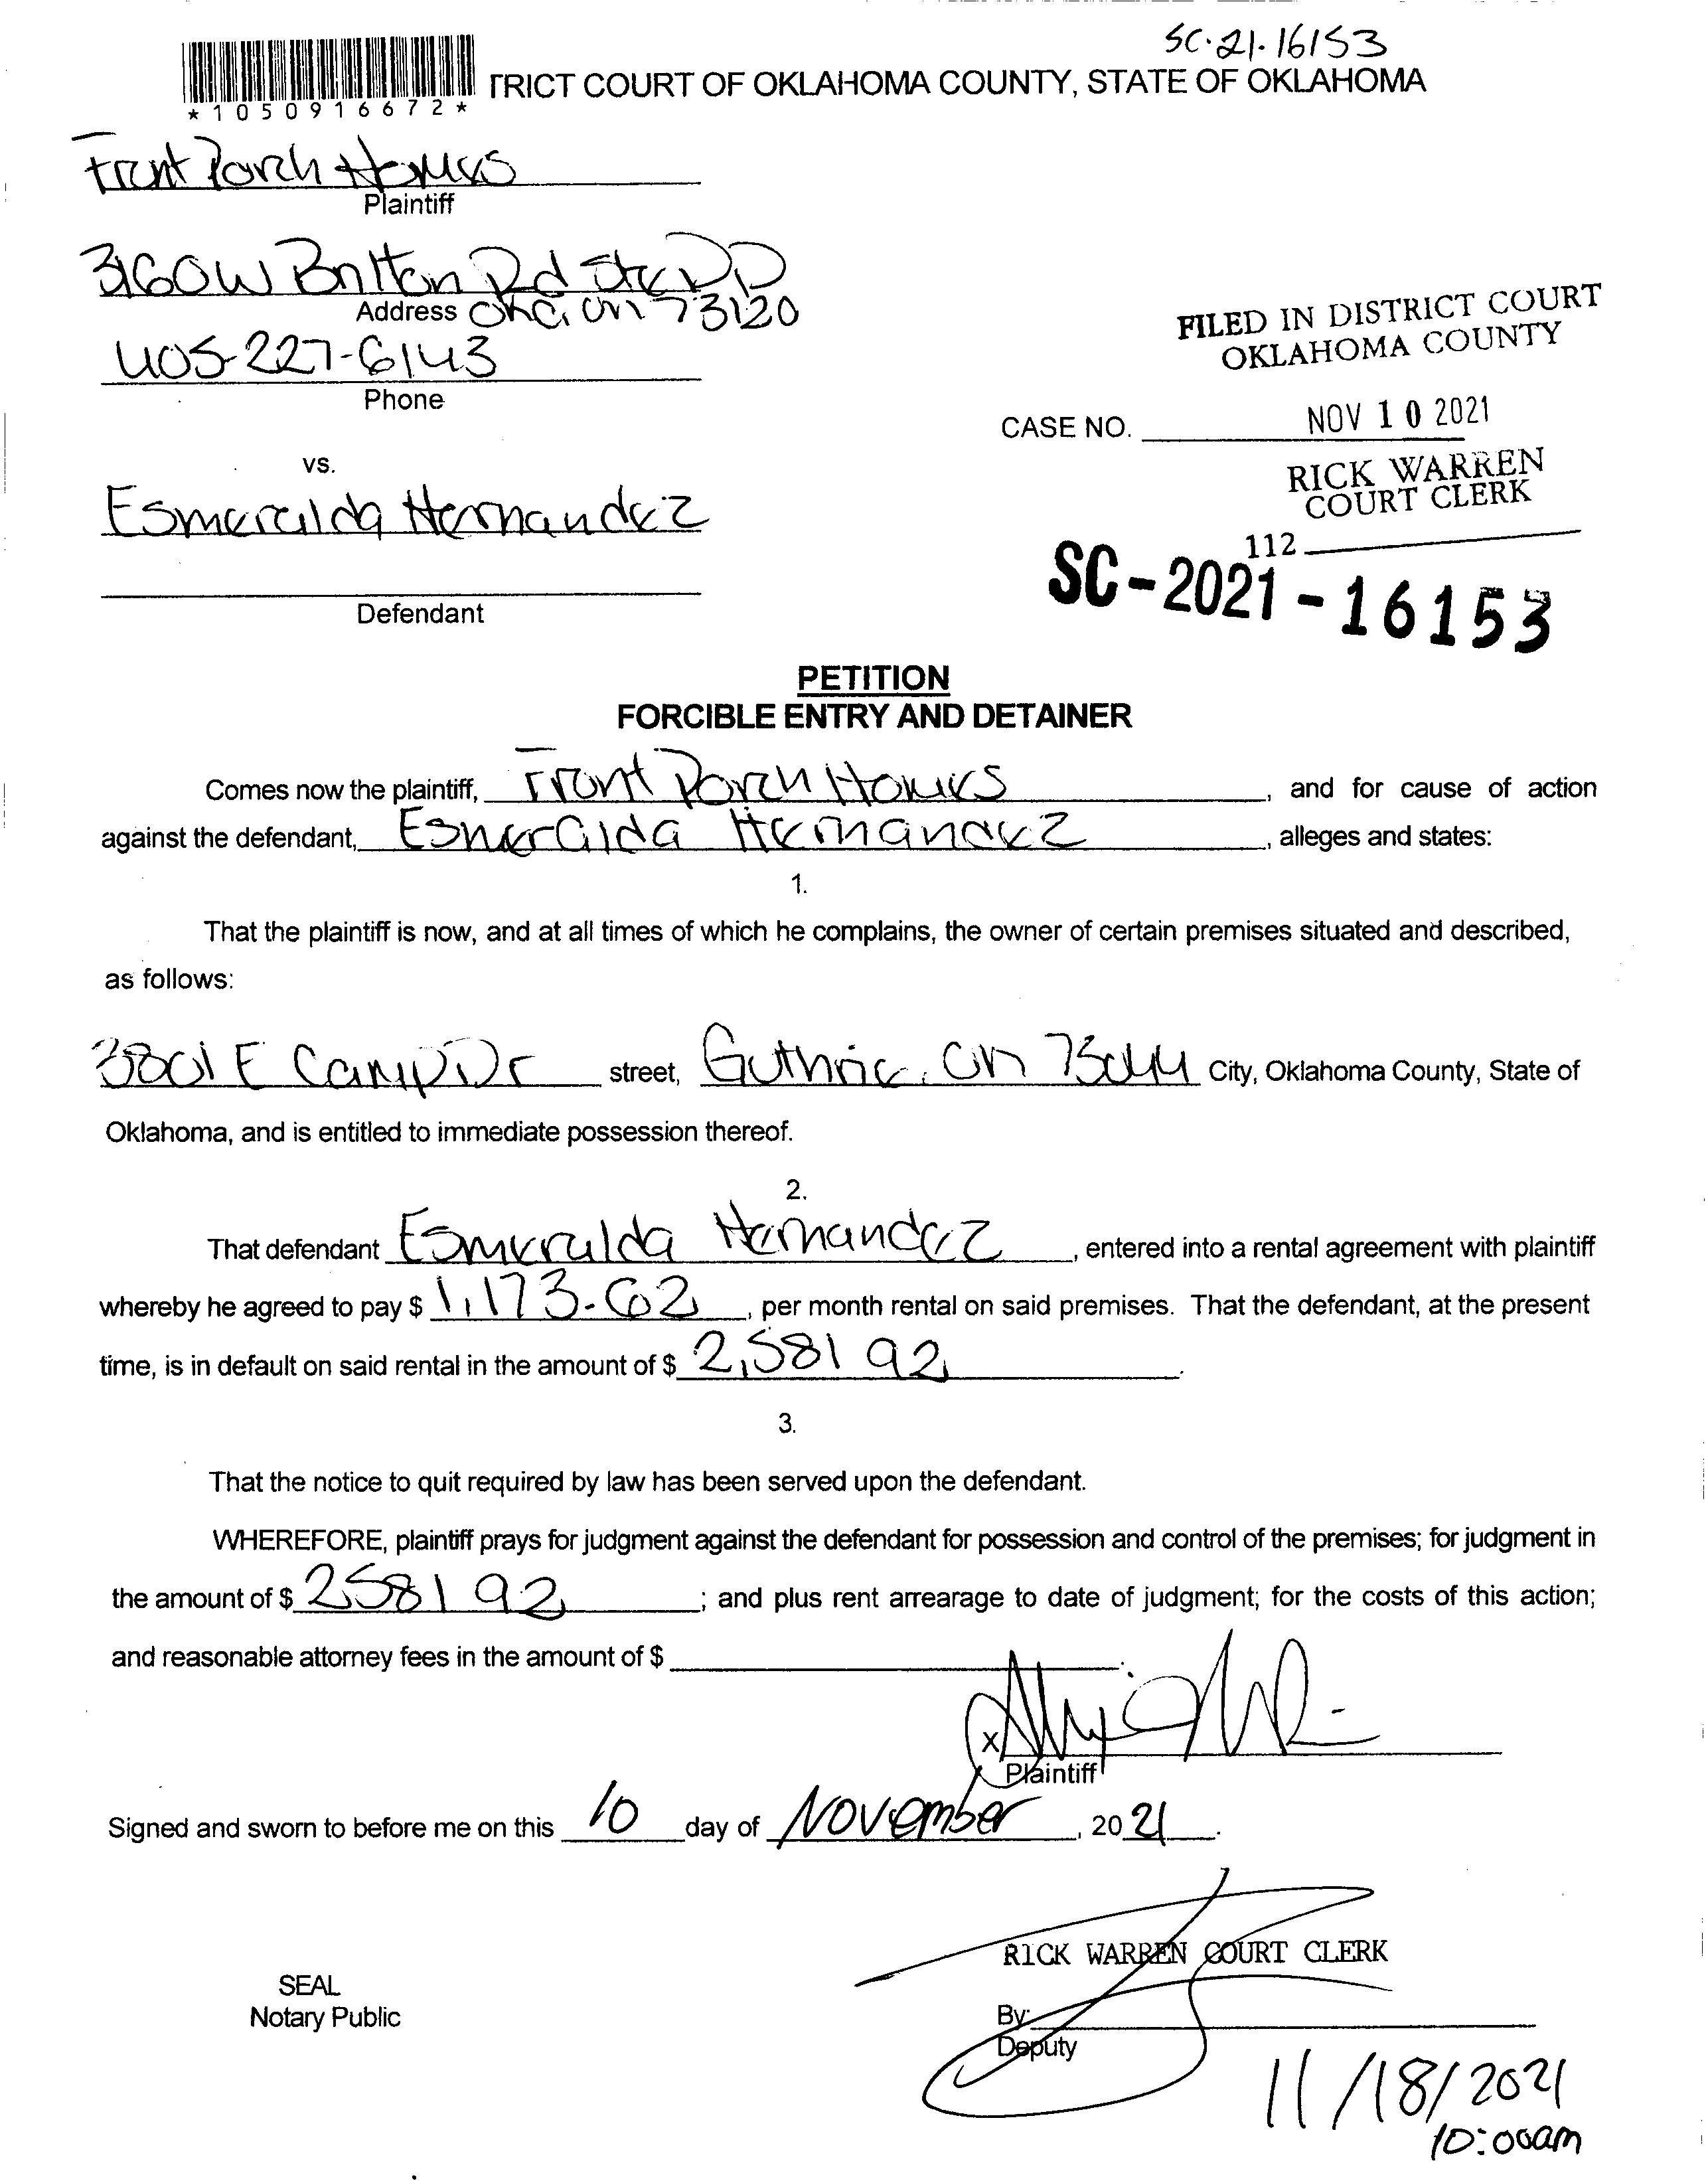 SC-21-16153
TRICT COURT OF OKLAHOMA COUNTY, STATE OF OKLAHOMA
*1050916672*
Front Porch Homes
Plaintiff
3160 W Britton Rd Ste D
Address OKC, OK 73120
405-227-6143
Phone
FILED IN DISTRICT COURT
OKLAHOMA COUNTY
CASE NO. NOV 10 2021
RICK WARREN
COURT CLERK
112
SC-2021-16153
vs.
Esmeralda Hernandez
Defendant
PETITION
FORCIBLE ENTRY AND DETAINER
Comes now the plaintiff, Front Porch Homes, and for cause of action
against the defendant, Esmeralda Hernandez, alleges and states:
1.
That the plaintiff is now, and at all times of which he complains, the owner of certain premises situated and described,
as follows:
3801 E Camp Dr street, Guthrie, OK 73044 City, Oklahoma County, State of
Oklahoma, and is entitled to immediate possession thereof.
2.
That defendant Esmeralda Hernandez, entered into a rental agreement with plaintiff
whereby he agreed to pay $ 1,173.62, per month rental on said premises. That the defendant, at the present
time, is in default on said rental in the amount of $ 2,581 92.
3.
That the notice to quit required by law has been served upon the defendant.
WHEREFORE, plaintiff prays for judgment against the defendant for possession and control of the premises; for judgment in
the amount of $ 2581 92; and plus rent arrearage to date of judgment; for the costs of this action;
and reasonable attorney fees in the amount of $
X
Plaintiff
Signed and sworn to before me on this 10 day of November, 2021.
RICK WARREN COURT CLERK
SEAL
Notary Public
By:
Deputy
11/18/2021
10:00am